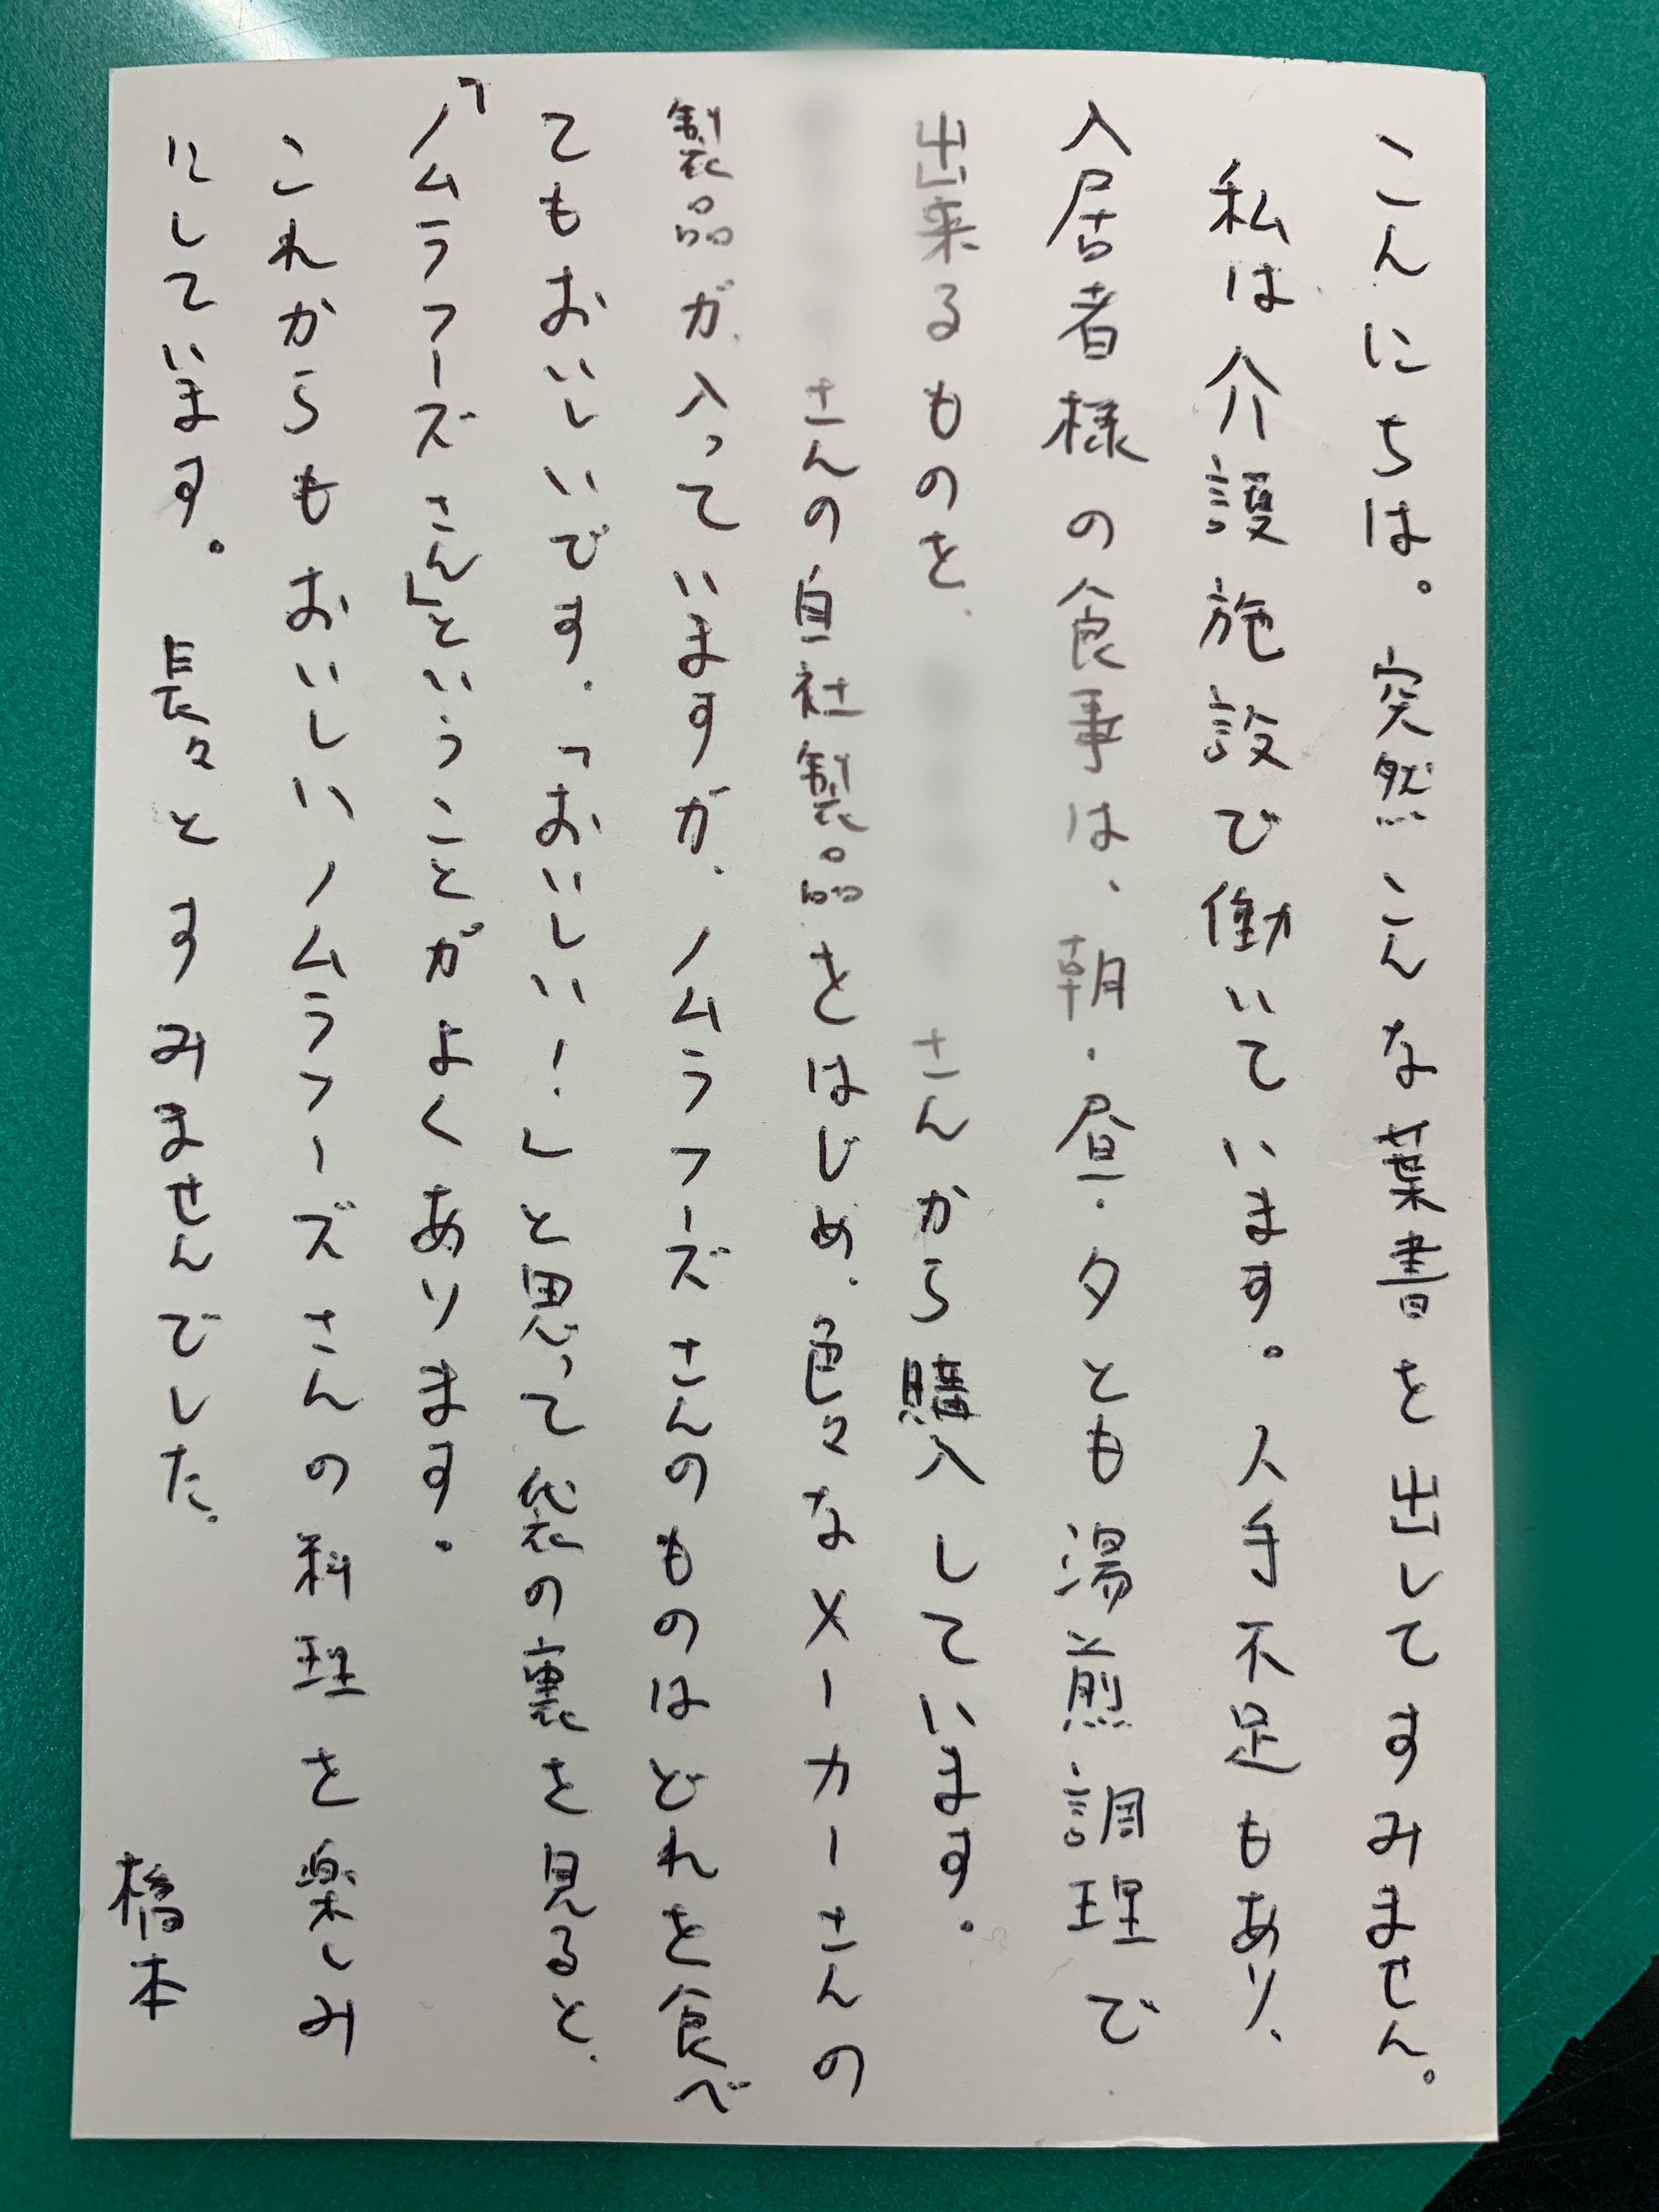 こんにちは。突然こんな葉書を出してすみません。
私は介護施設で働いています。人手不足もあり、
入居者様の食事は、朝・昼・夕とも湯煎調理で
出来るものを、さんから購入しています。
さんの自社製品をはじめ、色々なメーカーさんの
製品が入っていますが、ノムラフーズさんのものはどれを食べ
てもおいしいです。「おいしい!」と思って袋の裏を見ると、
「ノムラフーズさん」ということがよくあります。
これからもおいしいノムラフーズさんの料理を楽しみ
にしています。長々とすみませんでした。
橋本